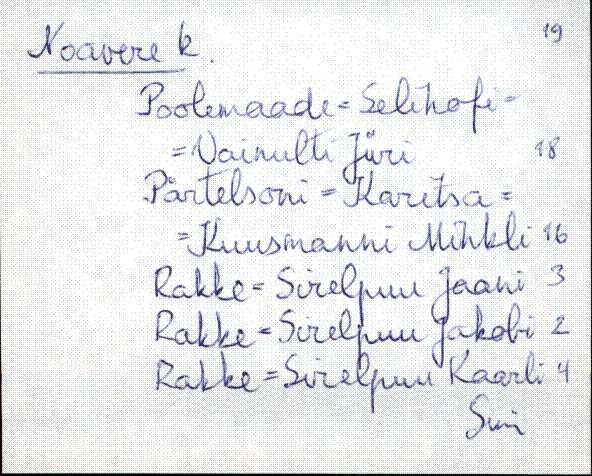 19
Noavere k.
Poolemaade = Selihofi -
= Vainulti Jüri 18
Pärtelsoni = Karitsa =
= Kuusmanni Mihkli 16
Rakke = Sirelpuu Jaani 3
Rakke = Sirelpuu Jakobi 2
Rakke = Sirelpuu Kaarli 4